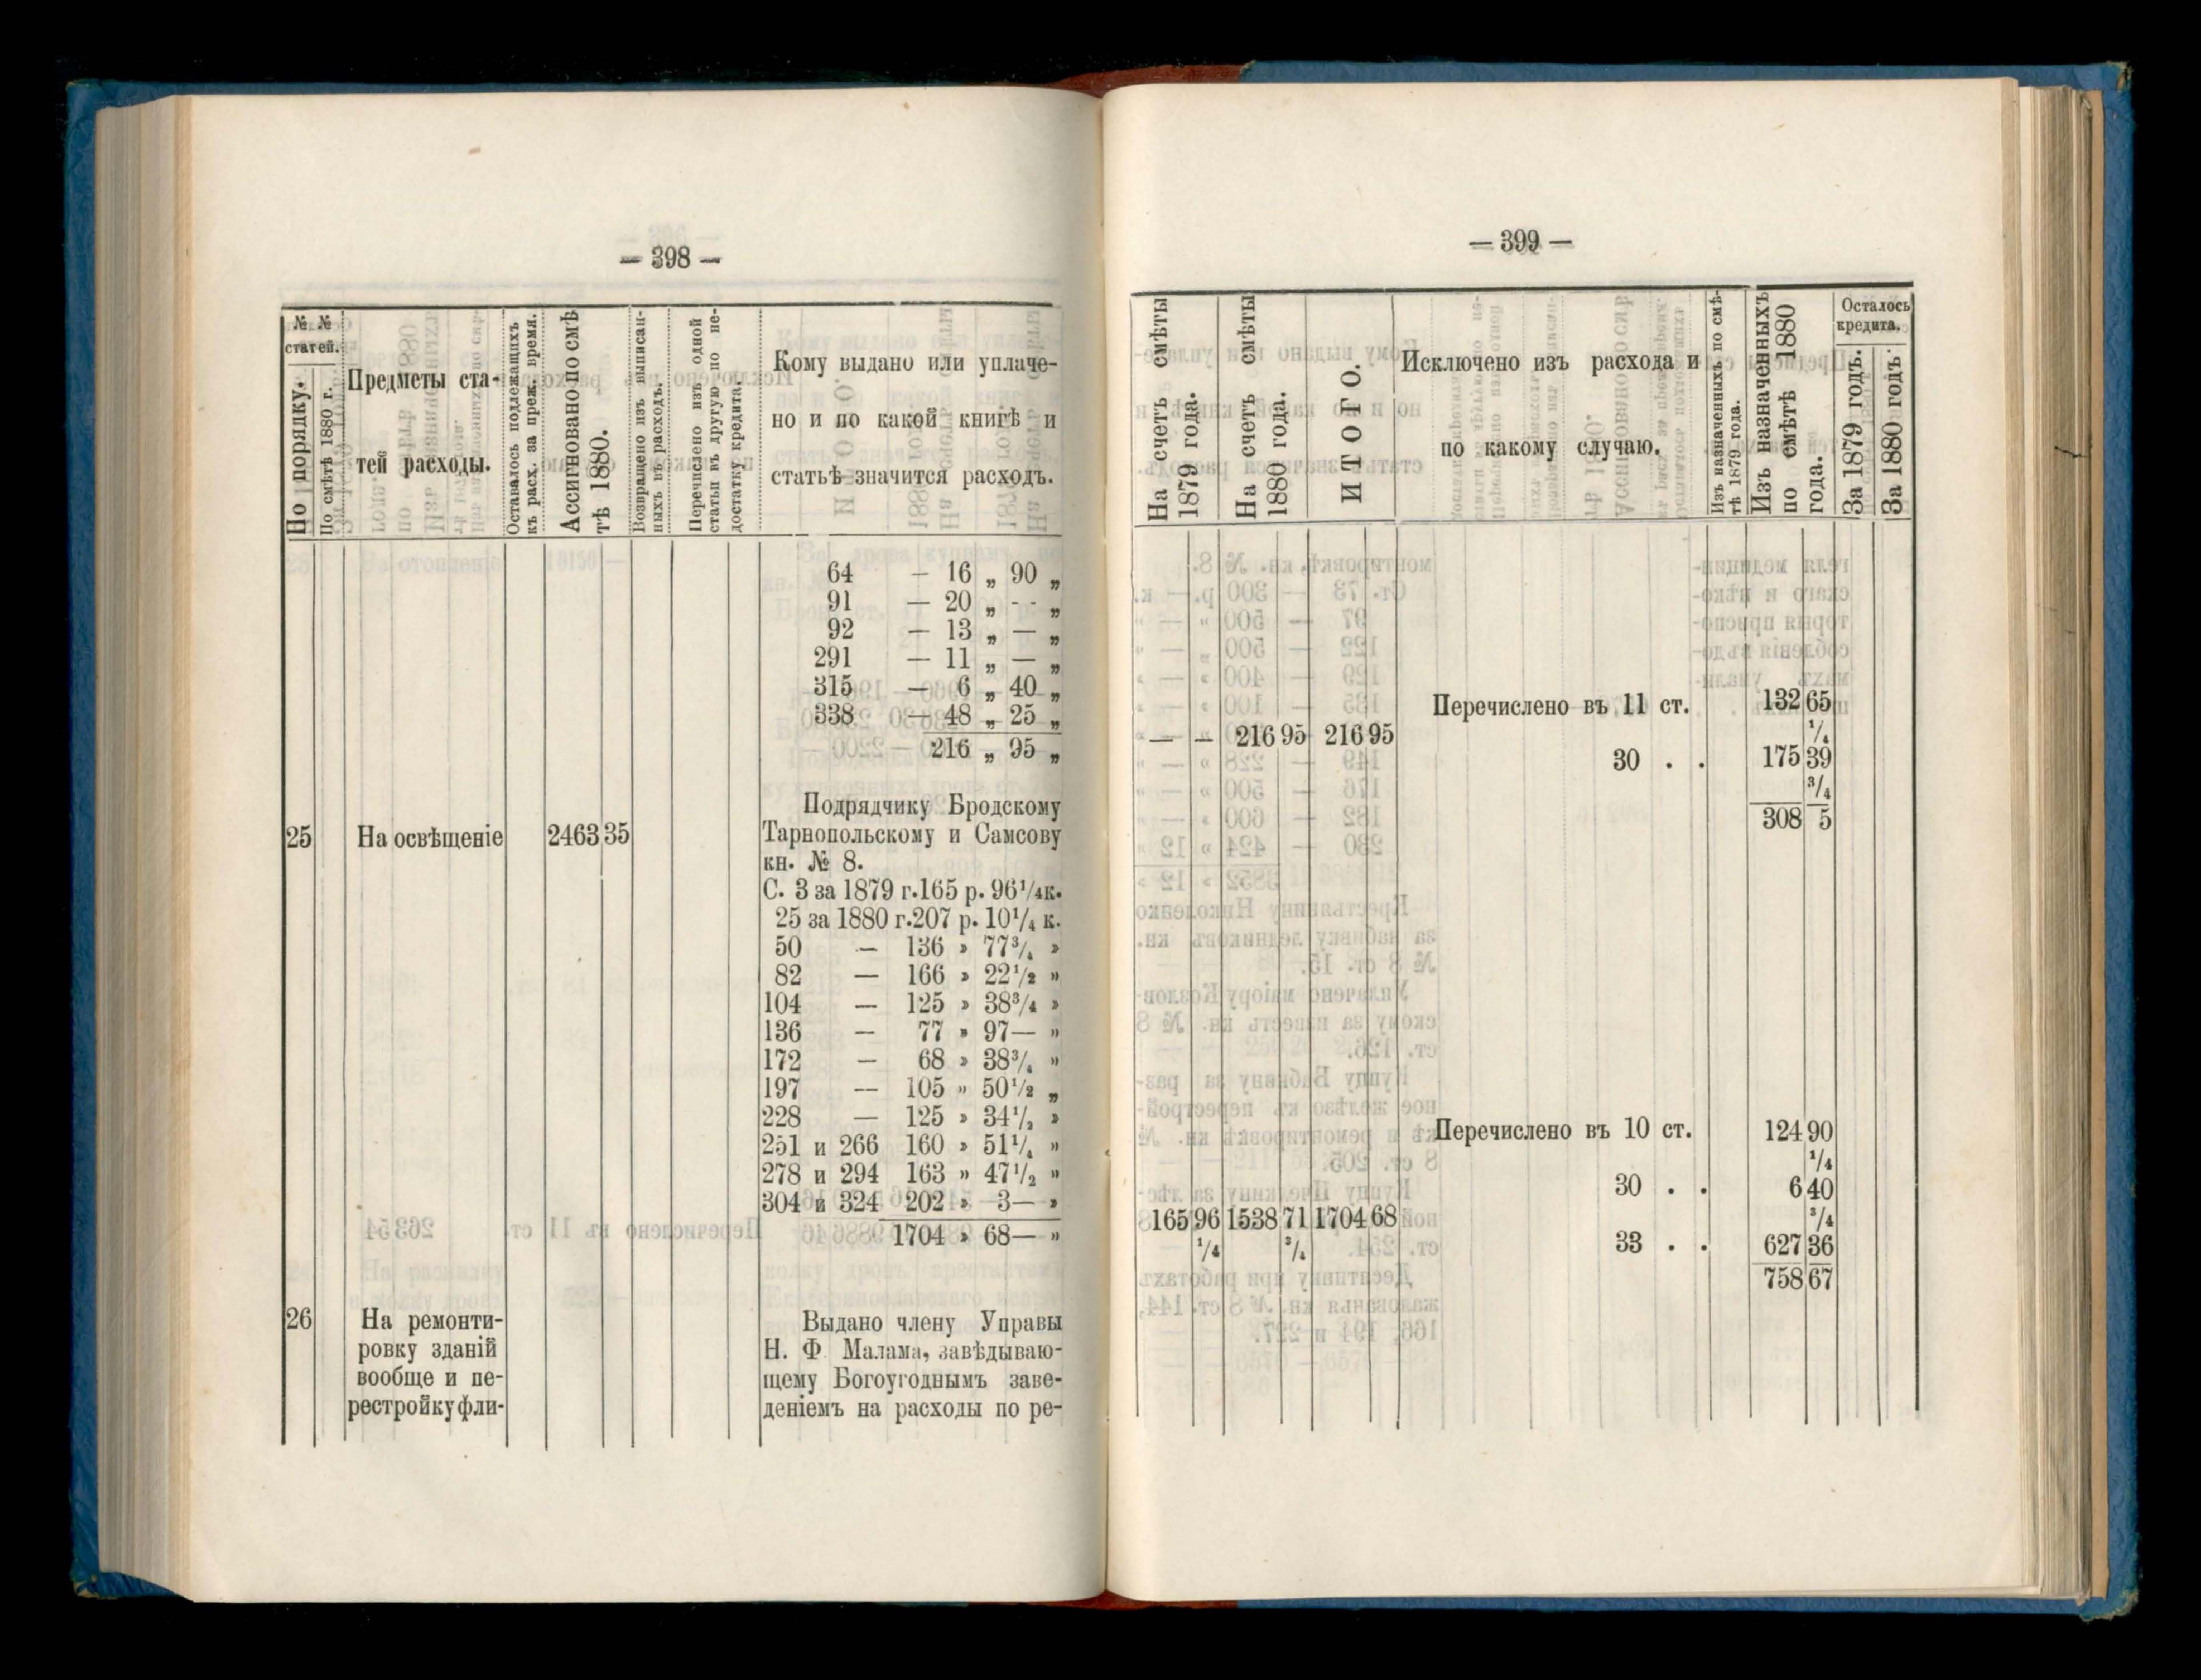 — 398 —
№ №
статей.
По порядку.
По смѣтѣ 1880 г.
Предметы ста-
тей расходы.
Оставалось подлежащихъ
къ расх. за преж. время.
Ассигновано по смѣ
тѣ 1880.
Возвращено изъ выписан-
ныхъ въ расходъ.
Перечислено изъ одной
статьи въ другую по не-
достатку кредита.
Кому выдано или уплаче-
но и по какой книгѣ и
статьѣ значится расходъ.
64 — 16 „ 90 „
91 — 20 „ - - „
92 — 13 „ — „
291 — 11 „ — „
315 — 6 „ 40 „
338 — 48 „ 25 „
216 „ 95 „
25 На освѣщеніе 2463 35
Подрядчику Бродскому
Тарнопольскому и Самсову
кн. № 8.
С. 3 за 1879 г. 165 р. 96¹/₄ к.
25 за 1880 г. 207 р. 10¹/₄ к.
50 — 136 » 77³/₄ »
82 — 166 » 22¹/₂ »
104 — 125 » 38³/₄ »
136 — 77 » 97— »
172 — 68 » 38³/₄ »
197 — 105 » 50¹/₂ „
228 — 125 » 34¹/₂ »
251 и 266 160 » 51¹/₄ »
278 и 294 163 » 47¹/₂ »
304 и 324 202 » 3— »
1704 » 68— »
26 На ремонти-
ровку зданій
вообще и пе-
рестройку фли-
Выдано члену Управы
Н. Ф Малама, завѣдываю-
щему Богоугоднымъ заве-
деніемъ на расходы по ре-
— 399 —
На счетъ смѣты
1879 года.
На счетъ смѣты
1880 года.
ИТОГО.
Исключено изъ расхода и
по какому случаю.
Изъ назначенныхъ по смѣ-
тѣ 1879 года.
Изъ назначенныхъ
по смѣтѣ 1880
года.
Осталось
кредита.
За 1879 годъ.
За 1880 годъ.
Перечислено въ 11 ст. 132 65
¹/₄
— — 216 95 216 95
30 . . 175 39
³/₄
308 5
Перечислено въ 10 ст. 124 90
¹/₄
30 . . 6 40
165 96 1538 71 1704 68 ³/₄
¹/₄ ³/₄
33 . . 627 36
758 67